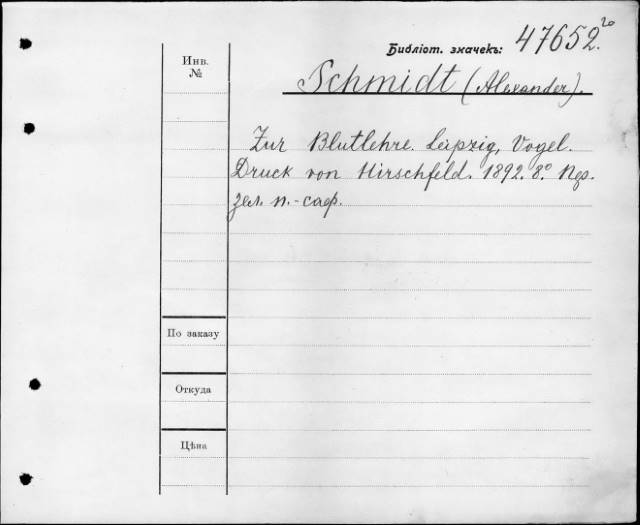 Библіот. значекъ: 47652.20
Инв.
№
Schmidt (Alexander).
Zur Blutlehre. Leipzig, Vogel.
Druck von Hirschfeld. 1892. 8º Пер.
зел. п.-саф.
По заказу
Откуда
Цѣна